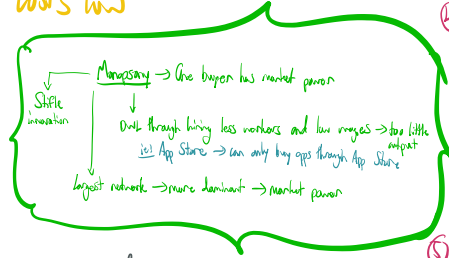 Monopsony → One buyer has market power
Stifle
innovation
DWL through hiring less workers and low wages → too little
output
ie) App Store → can only buy apps through App Store
Largest network → more dominant → market power